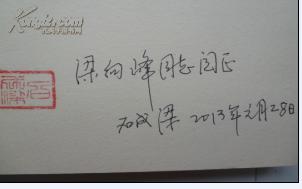 Kongfz.com
孔夫子旧书网
梁向峰同志闵正
石成梁 2013年元月28日